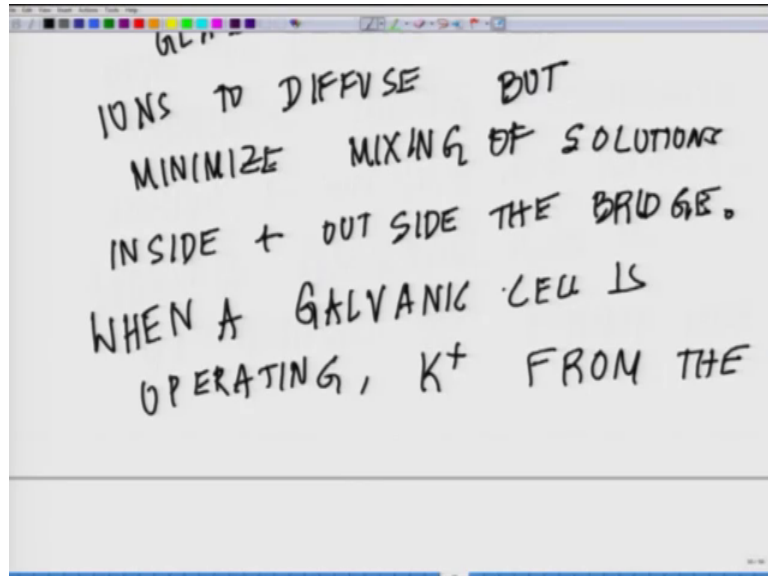 IONS TO DIFFUSE BUT
MINIMIZE MIXING OF SOLUTIONS
INSIDE + OUTSIDE THE BRIDGE.
WHEN A GALVANIC CELL IS
OPERATING, K+ FROM THE